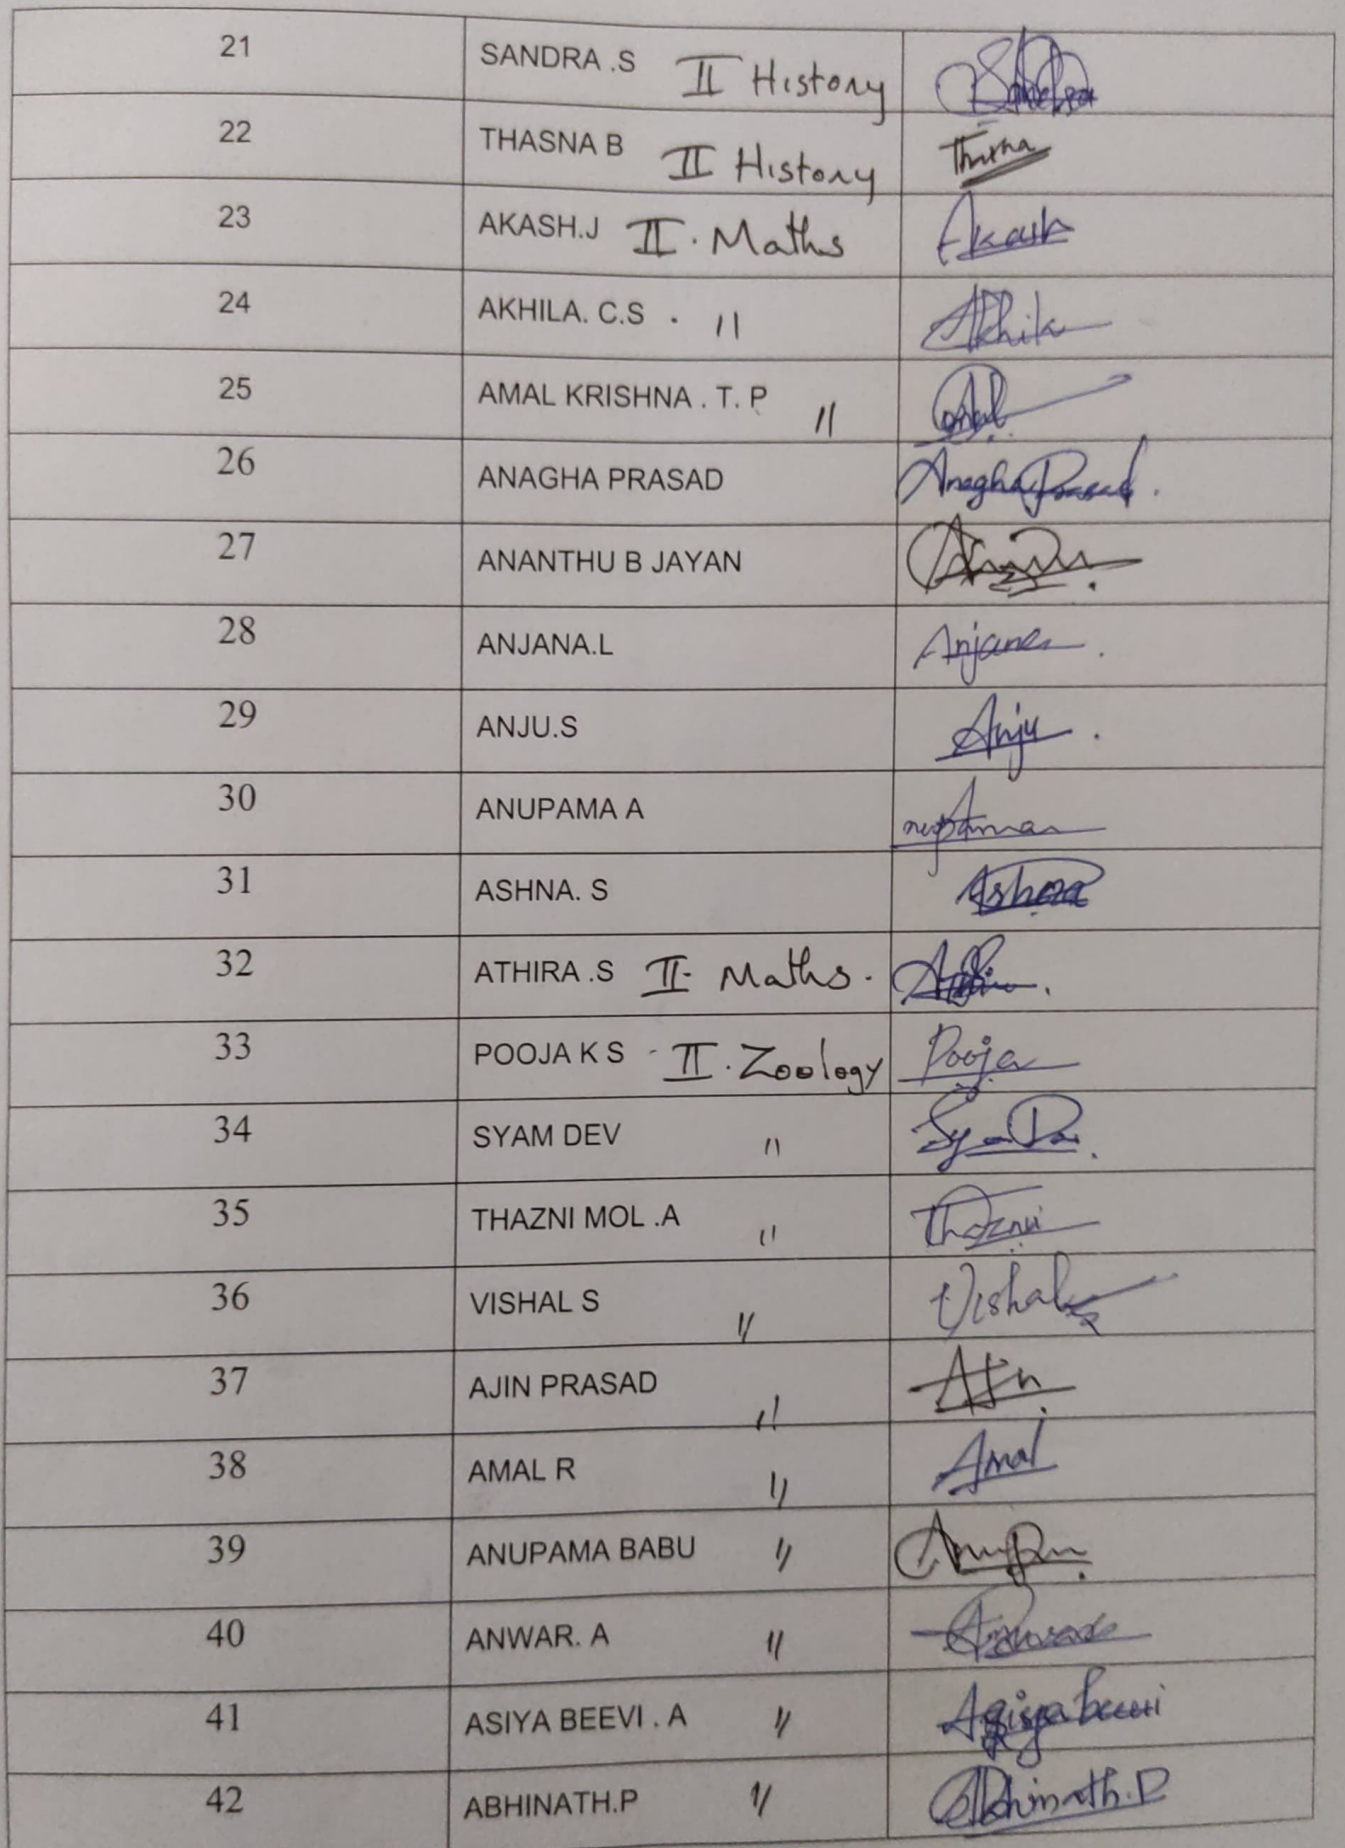 21 SANDRA .S II History
22 THASNA B II History Thasna
23 AKASH.J II. Maths Akash
24 AKHILA. C.S . " Akhila
25 AMAL KRISHNA . T. P " Amal
26 ANAGHA PRASAD Anagha Prasad.
27 ANANTHU B JAYAN
28 ANJANA.L Anjana.
29 ANJU.S Anju.
30 ANUPAMA A
31 ASHNA. S Ashna
32 ATHIRA .S II- Maths.
33 POOJA K S - II. Zoology Pooja
34 SYAM DEV " Syam Dev.
35 THAZNI MOL .A " Thazni
36 VISHAL S " Vishal
37 AJIN PRASAD " Ajin
38 AMAL R " Amal
39 ANUPAMA BABU "
40 ANWAR. A "
41 ASIYA BEEVI . A " Asiya beevi
42 ABHINATH.P " Abhinath.P